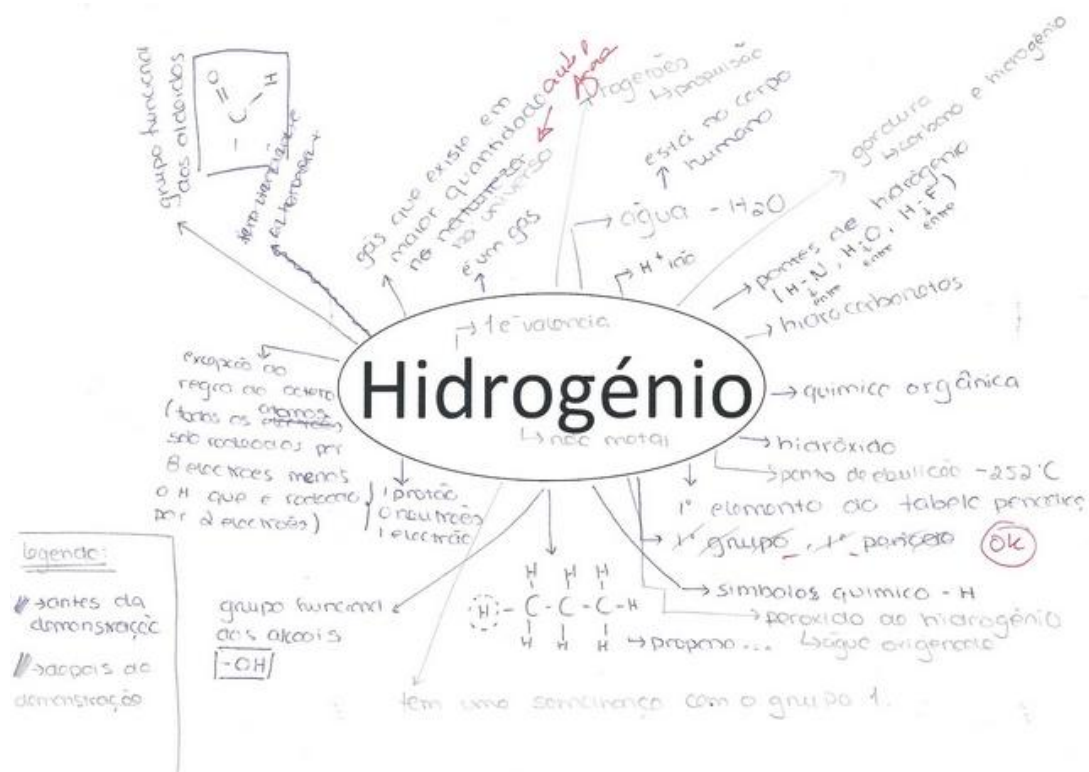 grupo funcional
dos aldeídos
O
C
H
gás que existe em
maior quantidade
no natureza
no universo
é um gás
propulsão
está no corpo
humano
água - H2O
H+ ião
gordura
carbono e hidrogénio
pontes de hidrogénio
(H-N, H-O, H-F)
entre entre entre
hidrocarbonetos
1 e- valencia
Hidrogénio
não metal
química orgânica
hidróxido
ponto de ebulicão -252°C
1º elemento da tabela
1º grupo, 1º
OK
simbolos quimico - H
peroxido de hidrogénio
água oxigenada
excepção ao
regra do octeto
(todos os átomos
são rodeados por
8 electrões menos
o H que é rodeado
por 2 electrões)
1 protão
0 neutrões
1 electrão
H H H
H - C - C - C - H
H H H
propano...
grupo funcional
dos alcoois
-OH
tem uma semelhança com o grupo 1.
legenda:
antes da
demonstração
depois da
demonstração